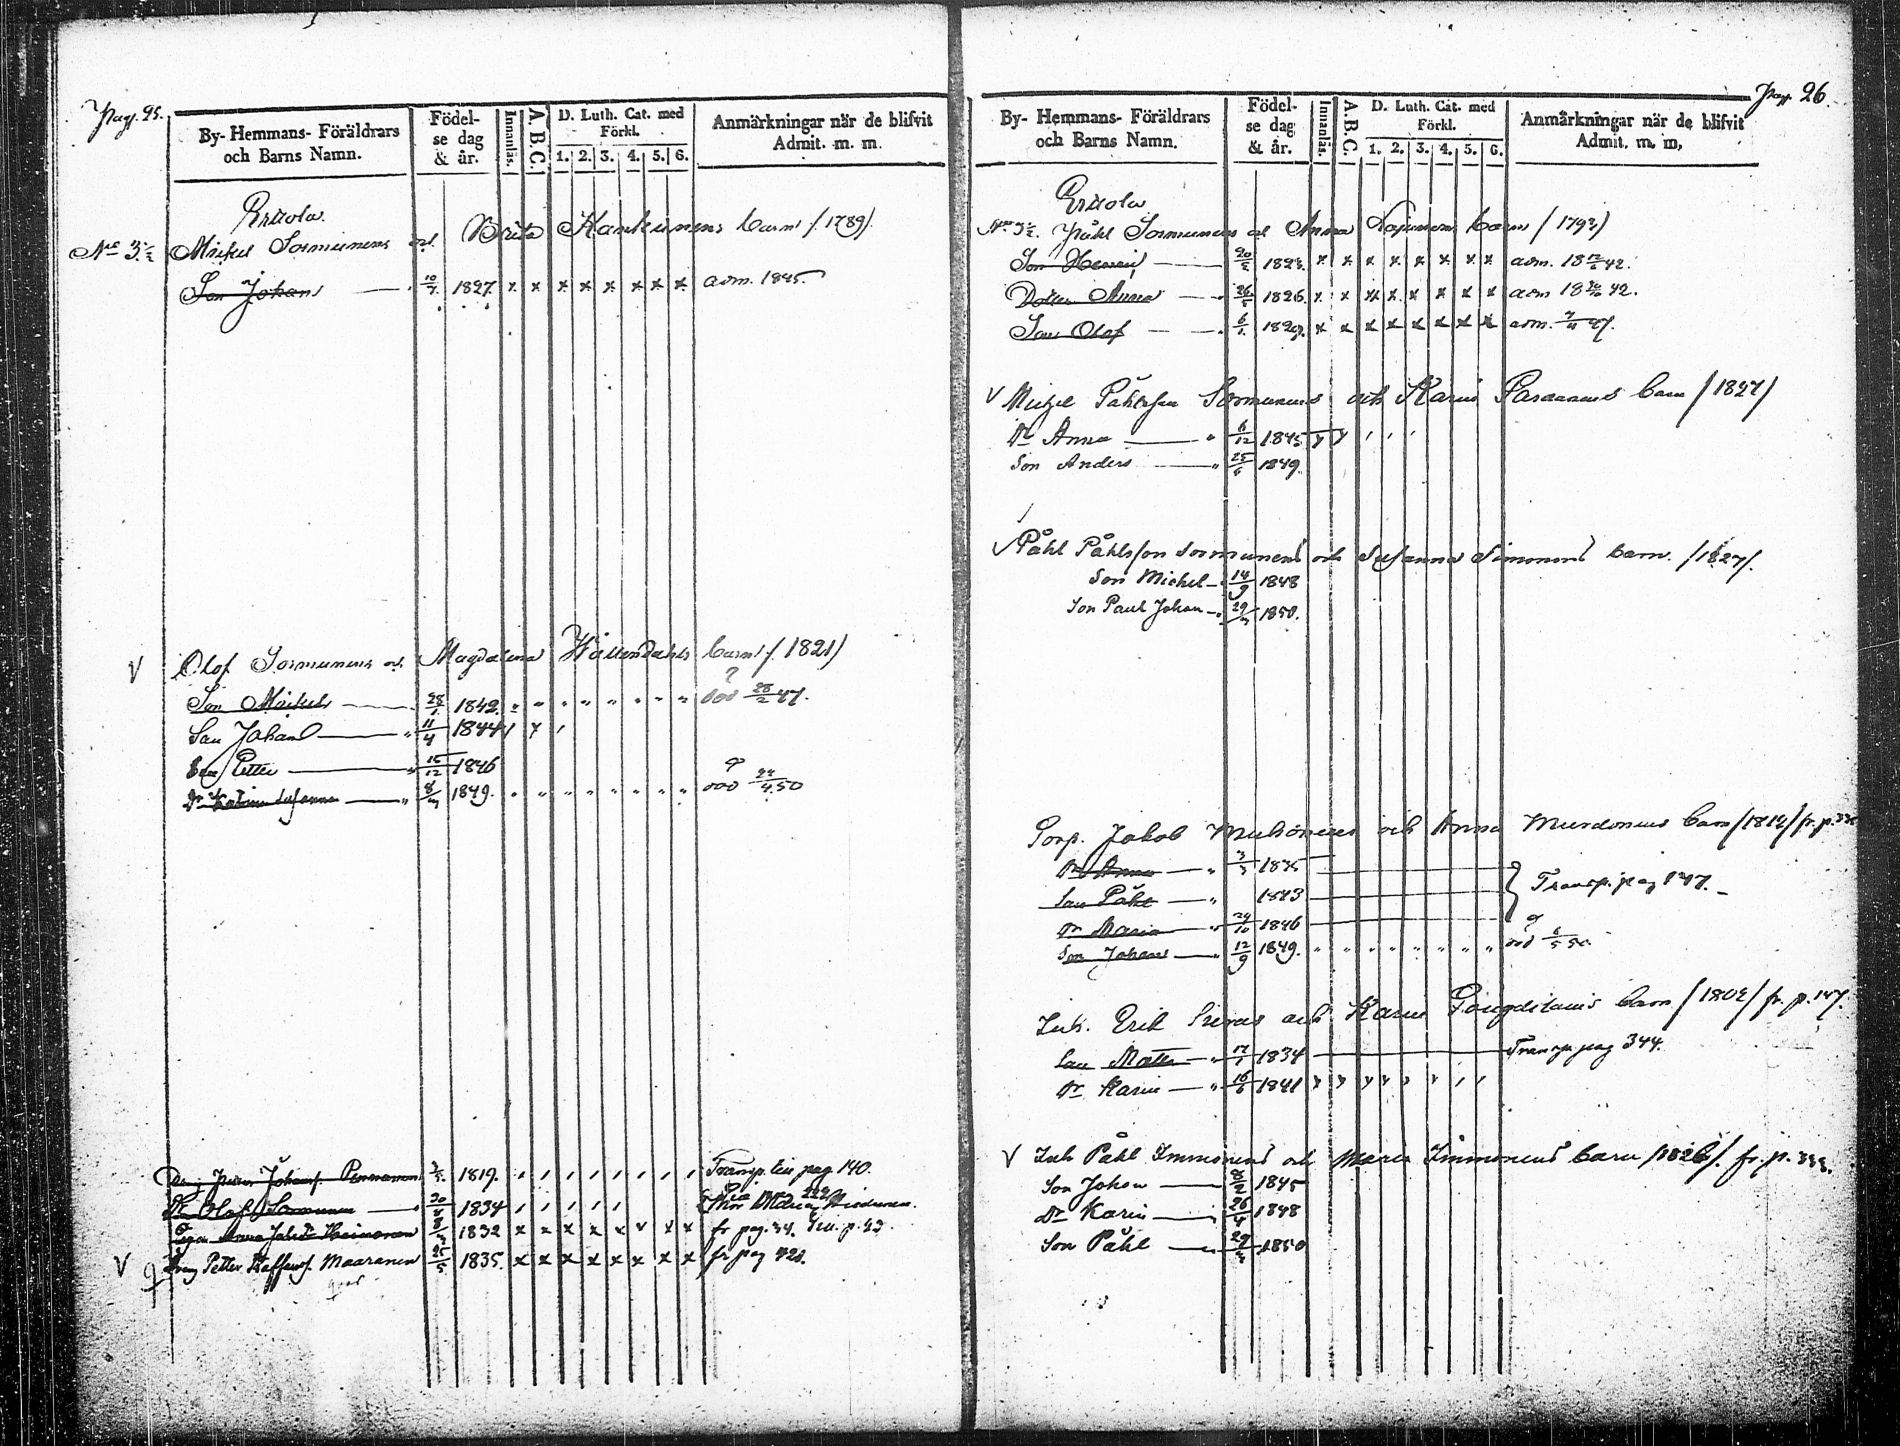 Pag. 25.
By- Hemmans- Föräldrars och Barns Namn.
Födelse dag & år.
Innanläs.
A.B.C.
D. Luth. Cat. med Förkl.
1. 2. 3. 4. 5. 6.
Anmärkningar när de blifvit Admit. m. m.
Erikola
No 3 Mickel Sormunens och Brita Kankunens barn (1789)
Son Johan 10/7 1827 x x x x x x x x adm. 1845
Olof Sormunens och Magdalena barn (1821)
Son Mickel 28/1 1842 " " " " " " " " död 28/2 47.
Son Johan " 11/4 1844
Son Petter " 15/12 1846
Dr Katrina Susanna " 8/3 1849. " " " " " " " " död 24/4 50
Johans. Pennanen 1819. Transp. till pag 140.
Olof 1834 Mor Maria
Anna Johsdr Heimonen 1832 x x x x x x x x fr pag. 34. p. 43
Dreng Petter Staffansf. Maaranen 25/5 1835. x x x x x x x x fr pag 421.
Pag. 26.
By- Hemmans- Föräldrars och Barns Namn.
Födelse dag & år.
Innanläs.
A.B.C.
D. Luth. Cat. med Förkl.
1. 2. 3. 4. 5. 6.
Anmärkningar när de blifvit Admit. m. m.
Erikola
No 3 Påhl Sormunens och Anna barn (1793)
Son Henric 1823. x x x x x x x x adm. 18 42.
Dotter Anna 26/5 1826. x x x x x x x x adm 18 42.
Son Olof 6/1. 1829. x x x x x x x x adm. 47.
Michel Påhlsson Sormunens och Karin barn (1827)
Dr Anna " 6/12 1845
Son Anders " 1849
Påhl Påhlsson Sormunens och Susanna Simonens barn. (1827).
Son Michel 14/9 1848
Son Paul Johan 29/3 1850.
Torp. Jakob och Anna Murdonens barn (1812) fr. p.
Dr Anna " 3/3 1835
Son Påhl " 1843 Transp. pag 147.
Dr Maria " 24/10 1846
Son Johan " 12/9 1849. " " " " " " " " död 6/5 50.
Inh. Erik och Karin barn (1802) fr. p. 147.
Son Matts " 17/1 1834 Transp pag 344.
Dr Karin " 16/6 1841
Inh Påhl Immonens och Maria Immonens barn (1826). fr. p. 333.
Son Johan 8/2 1845
Dr Karin 26/4 1848
Son Påhl 29/3 1850